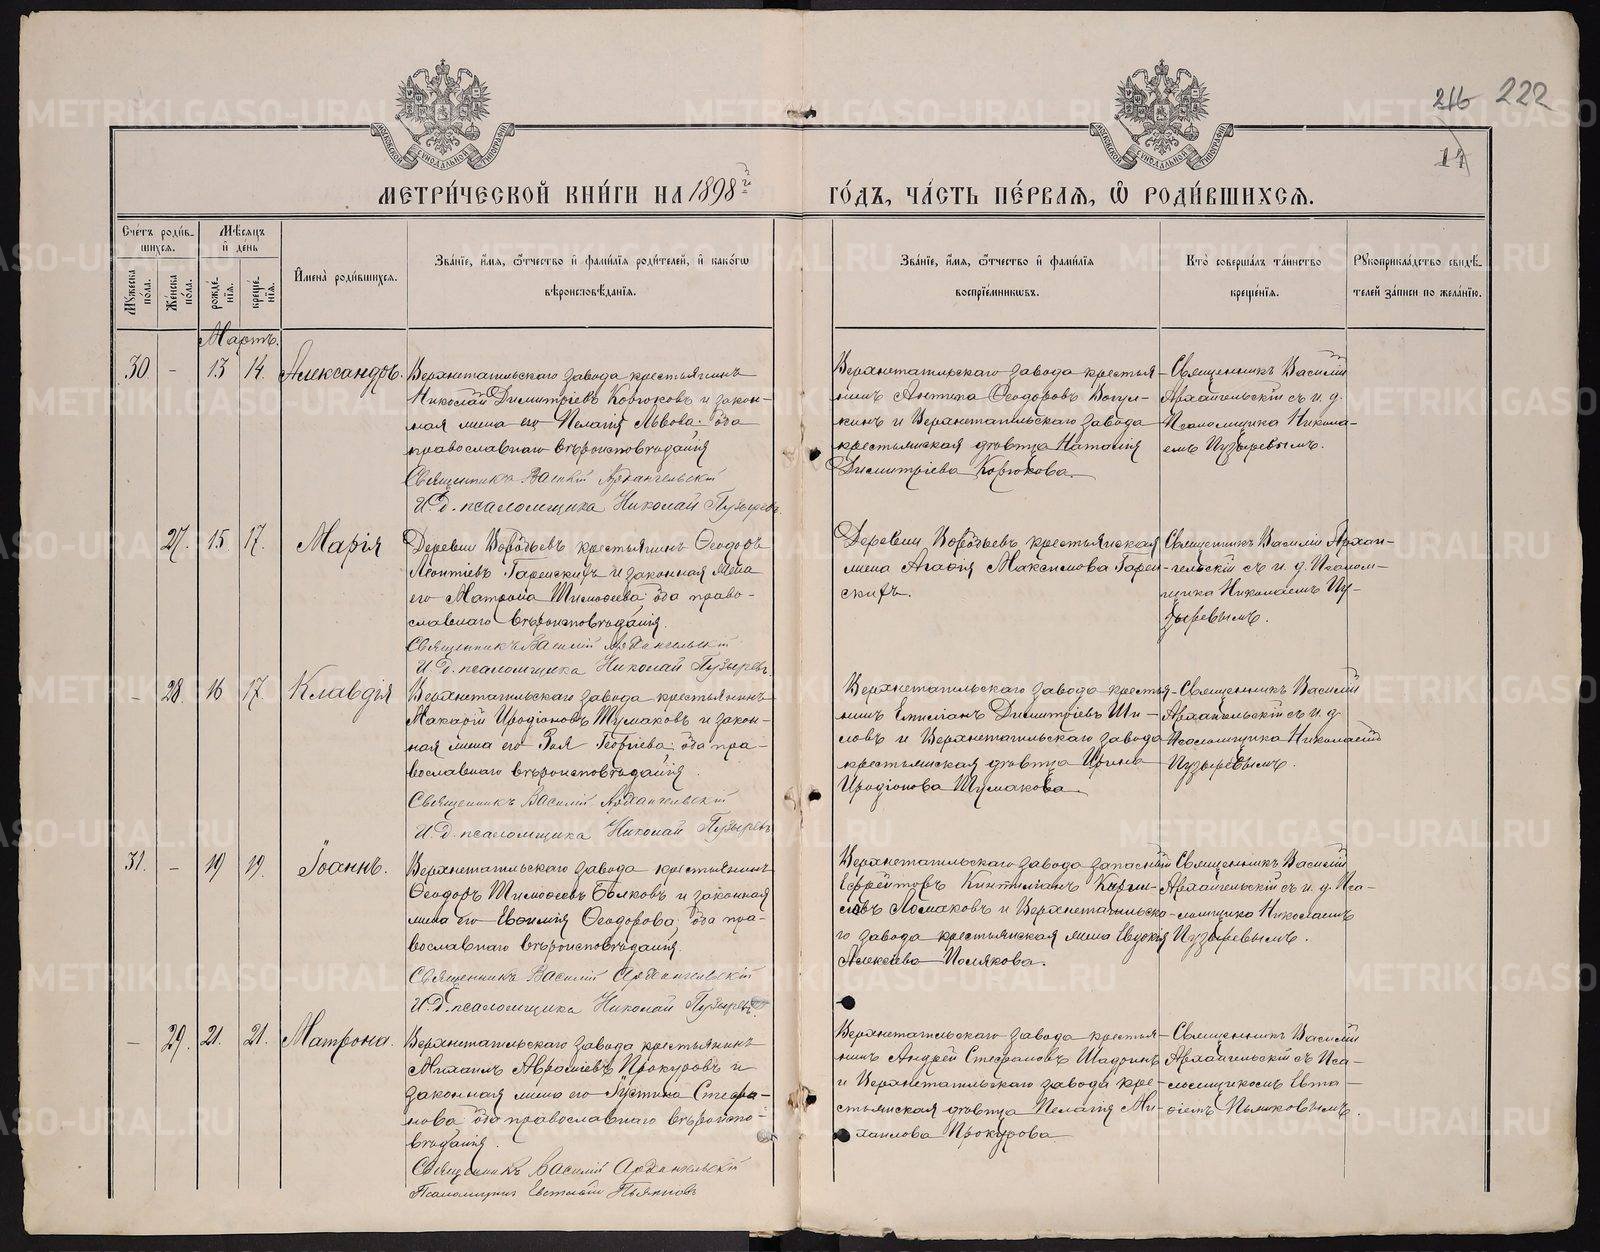 216 222
14
МОСКОВСКОЙ СУНОДАЛЬНОЙ ТИПОГРАФІИ
МОСКОВСКОЙ СУНОДАЛЬНОЙ ТИПОГРАФІИ
МЕТРИ́ЧЕСКОЙ КНИ́ГИ НА 1898й
ГО́ДЪ, ЧА́СТЬ ПЕ́РВАЯ, Ѡ РОДИ́ВШИХСЯ.
Сче́тъ роди́в-
шихся.
Мѣ́сяцъ
и҆ день
Мꙋжеска по́ла.
Же́нска по́ла.
рожде́-
нїѧ.
креще́-
нїѧ.
И҆мена̀ роди́вшихся.
Зва́нїе, и҆́мѧ, ѻ҆́тчество и҆ фами́лїѧ роди́телей, и҆ како́гѡ
вѣроисповѣ́данїѧ.
Зва́нїе, и҆́мѧ, ѻ҆́тчество и҆ фами́лїѧ
воспрїе́мникѡвъ.
Кто̀ соверша́лъ та́инство
креще́нїѧ.
Рꙋкоприкла́дство свидѣ́-
телей за́писи по жела́нїю.
Мартъ.
30 - 13 14. Александръ.
Верхнетагильскаго завода крестьянинъ
Николай Димитріевъ Корюковъ и закон-
ная жена его Пелагія Львова: Оба
православнаго вѣроисповѣданія
Священникъ Василій Архангельскій
И.д. псаломщика Николай Пузыревъ
Верхнетагильскаго завода крестья-
нинъ Антипа Ѳеодоровъ Вогул-
кинъ и Верхнетагильскаго завода
крестьянская дѣвица Наталія
Димитріева Корюкова.
Священникъ Василій
Архангельскій съ и. д.
Псаломщика Никола-
емъ Пузыревымъ.
27. 15. 17. Марія
Деревни Воробьевъ крестьянинъ Ѳеодоръ
Леонтіевъ Гаренскихъ и законная жена
его Матрона Тимоѳеева: Оба право-
славнаго вѣроисповѣданія.
Священникъ Василій Архангельскій
И.д. псаломщика Николай Пузыревъ
Деревни Воробьевъ крестьянская
жена Агафія Максимова Гарен-
скихъ.
Священникъ Василій Архан-
гельскій съ и. д. Псалом-
щика Николаемъ Пу-
зыревымъ.
- 28. 16 17. Клавдія
Верхнетагильскаго завода крестьянинъ
Макарій Иродіоновъ Шумаковъ и закон-
ная жена его Зоя Георгіева: Оба пра-
вославнаго вѣроисповѣданія.
Священникъ Василій Архангельскій
И.д. псаломщика Николай Пузыревъ
Верхнетагильскаго завода крестья-
нинъ Емиліанъ Димитріевъ Ши-
ловъ и Верхнетагильскаго завода
крестьянская дѣвица Ирина
Иродіонова Шумакова
Священникъ Василій
Архангельскій съ и. д.
Псаломщика Николаемъ
Пузыревымъ.
31. - 19 19. Іоаннъ.
Верхнетагильскаго завода крестьянинъ
Ѳеодоръ Тимоѳеевъ Поляковъ и законная
жена его Евѳимія Ѳеодорова; Оба пра-
вославнаго вѣроисповѣданія.
Священникъ Василій Архангельскій
И.д. псаломщика Николай Пузыревъ
Верхнетагильскаго завода запасный
Ефрейторъ Кинтиліанъ Карпи-
ловъ Ломаковъ и Верхнетагильска-
го завода крестьянская жена Евдокія
Алексѣева Полякова.
Священникъ Василій
Архангельскій съ и. д. Пса-
ломщика Николаемъ
Пузыревымъ.
- 29. 21. 21. Матрона.
Верхнетагильскаго завода крестьянинъ
Михаилъ Аврамiевъ Прокуровъ и
законная жена его Іустина Стефа-
нова Оба православнаго вѣроиспо-
вѣданія.
Священникъ Василій Архангельскій
Псаломщикъ Евстафій Пьянковъ
Верхнетагильскаго завода крестья-
нинъ Андрей Стефановъ Шадринъ
и Верхнетагильскаго завода кре-
стьянская дѣвица Пелагія Ми-
хаилова Прокурова
Священникъ Василій
Архангельскій съ Пса-
ломщикомъ Евста-
фіемъ Пьянковымъ.
METRIKI.GASO-URAL.RU